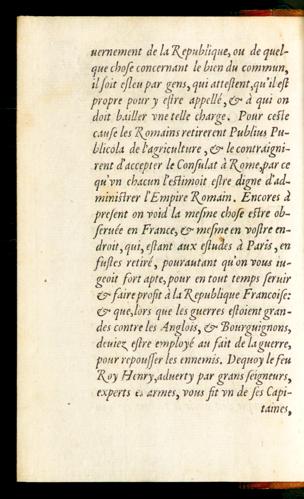 uernement de la Republique, ou de quel-
que chose concernant le bien du commun,
il soit esleu par gens, qui attestent, qu'il est
propre pour y estre appellé, & à qui on
doit bailler vne telle charge. Pour ceste
cause les Romains retirerent Publius Pu-
blicola de l'agriculture, & le contraigni-
rent d'accepter le Consulat à Rome, par ce
qu'vn chacun l'estimoit estre digne d'ad-
ministrer l'Empire Romain. Encores à
present on void la mesme chose estre ob-
seruée en France, & mesme en vostre en-
droit, qui, estant aux estudes à Paris, en
fustes retiré, pourautant qu'on vous iu-
geoit fort apte, pour en tout temps seruir
& faire profit à la Republique Francoise:
& que, lors que les guerres estoient gran-
des contre les Anglois, & Bourguignons,
deuiez estre employé au fait de la guerre,
pour repousser les ennemis. Dequoy le feu
Roy Henry, aduerty par grans seigneurs,
experts armes, vous fit vn de ses Capi-
taines,